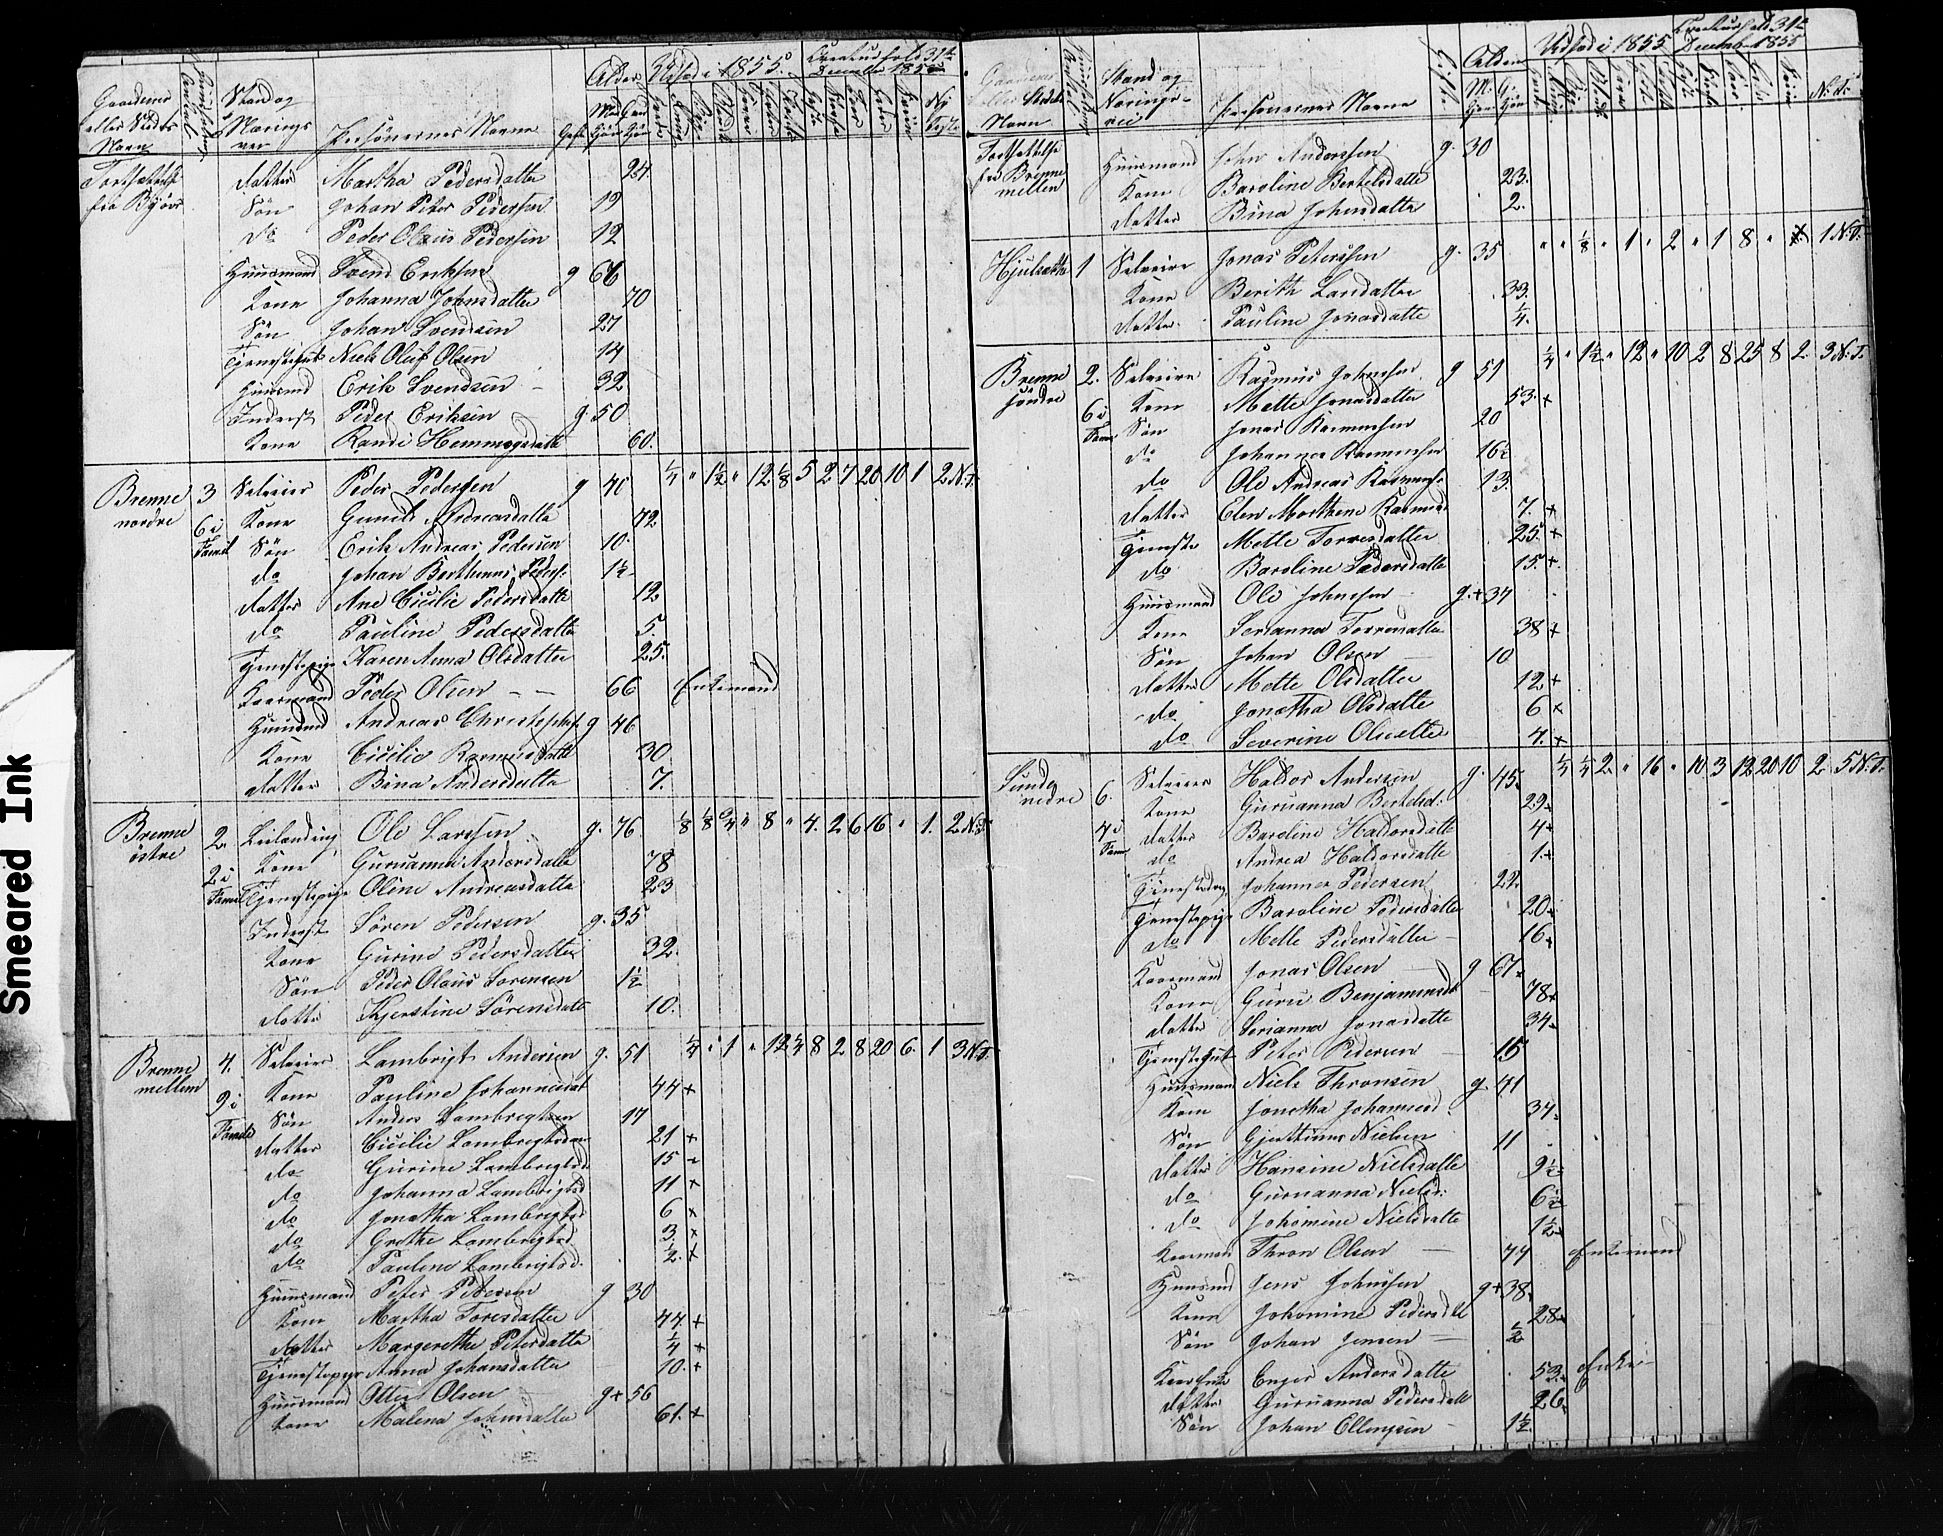 Smeared Ink
Gaardenes eller Stedets Navn
Stand og Nærings
Personernes Navne
Gift
Alder
Udsæd i 1855
Creaturhold 31te December 1855
Fortsættelse fra Byövr
Datter Martha Pedersdatter 24
Søn Johan Peter Pedersen 19
do Peder Olaus Pedersen 12
Huusmand Svend Eriksen g 66
Kone Johanna Johnsdatter 70
Søn Johan Svendsen 27
Tjenestegut Niels Oluf Olsen 14
Huusmd Erik Svendsen 32
Inderst Peder Eriksen g. 50
Kone Randi Hemmingsdatt 60.
Brenne nordre 3 Selveier Peder Pedersen g 40 1/4 " 1 1/2 " 12 1/8 5 2 7 20 10 1 2 N.T.
6 i Famil
Kone Gunild Andreasdatte 42
Søn Erik Andreas Pedersen 10.
do Johan Berthinus Peders. 1 1/2
Datter Ane Cicilie Pedersdatte 12
do Pauline Pedersdatter 5.
Tjenestepige Karen Anna Olsdatter 25.
Kaarmand Peder Olsen 66 Enkemand
Huusmd Andreas Christophs. g. 46
Kone Cicilie Rasmusdatte 30
Datter Bina Andersdatte 7.
Brenne östre 2 Leilænding Ole Larssen g. 76 1/8 1/8 3/4 " 8 " 4. 2 6 16 " 1. 2 N.T.
2 i Famil
Kone Guruanna Andersdatte 78
Tjenestepige Oline Andreasdatte 23
Inderst Sören Pedersen g. 35
Kone Gurine Pedersdatter 32.
Søn Peder Olaus Sorensen 1 1/2
Datte Kjerstine Sörensdatt 10.
Brenne mellem 4. Selveier Lambrigt Andersen g. 51 1/4 " 1 " 12 1/4 8 2 8 20 6. 1 3 N.T.
9 i Famil
Kone Pauline Johannesdat 44 +
Søn Anders Lambrigtsen 17
Datter Cicilie Lambrigtsda 21 +
do Gurine Lambrigtsd 15
do Johanna Lambrigtsd 11 +
do Jonetha Lambrigtsd 6 +
do Grethe Lambrigtsd 3. +
do Pauline Lambrigtsd. 1/2 +
Huusmand Peter Petersen g 30
Kone Martha Toresdatter 44 +
Datter Margrethe Petersdatte 1/4 +
Tjenestepige Anna Johansdatter 10. +
Huusmand Otter Olsen g + 56
Kone Malena Johnsdatte 61. +
Gaardenes eller Stedets Navn
Stand og Næringsvei
Personernes Navne
Gifte
Alder
Udsæd i 1855
Creaturhold 31te December 1855
N.T.
Fortsættelse fra Brenne mellem
Huusmand John Anderssen g. 30
Kone Baroline Bertelsdatte 23.
Datter Bina Johnsdatter 2.
Hjulsætte 1 Selveier Jonas Peterssen g. 35 " " 1/8 " 1 " 2 " 1 8 " 1 N.T.
Kone Berith Larsdatter 33.
Datter Pauline Jonasdatte 1/4.
Brenne söndre 2. Selveier Rasmus Johnsen g 51 1/4 " 1 1/2 " 12 " 10 2 8 25 8 2. 3 N.T.
6 i Famil
Kone Mette Jonasdatter 53. +
Søn Jonas Rasmussen 20
do Johannes Rasmussen 16
do Ole Andreas Rasmuss. 13.
Datter Elen Marthene Rasmusd 7. +
Tjeneste Mette Torresdatter 25. +
do Baroline Pedersdatte 15. +
Huusmand Ole Johnsen g. + 34
Kone Serianna Torresdatter 38 +
Søn Johan Olsen 10
Datter Mette Olsdatter 12 +
do Jonetha Olsdatte 6 +
do Severine Olsdatte 4. +
Lunde nedre 6. Selveier Haldor Andersen g. 45. 1/4 1/4 2 " 16 " 10 3 12 20 10 2 5 N.T.
4 i Famil
Kone Guruanna Bertelsd. 29
Datter Baroline Haldorsdatte 4
do Andrea Haldorsdatte 1.
Tjenestedrg. Johannes Pedersen 22.
Tjenestepige Baroline Pedersdatte 20
do Mette Pedersdatter 16
Kaarmand Jonas Olsen g 67
Kone Guru Benjaminsdt 78
Datter Serianna Jonasdatte 34
Tjenestegut Peter Pedersen 15
Huusmand Niels Thronsen g. 41
Kone Jonetha Johannesd. 34.
Søn Gjertinus Nielsen 11
Datter Hansine Nielsdatte 9 1/2
do Guruanna Nielsd. 6 1/2
do Johomine Nielsdatte 1 1/2
Kaarman Thron Olsen 74 Enkemand
Huusmd Jens Johnssen g + 38
Kone Johomine Pedersdtt 28
Søn Johan Jensen 1/2
Enger Andersdatte 53. Enke
Datter Guruanna Pedersdatt 26
Søn Johan Ellingsen 1 1/2.